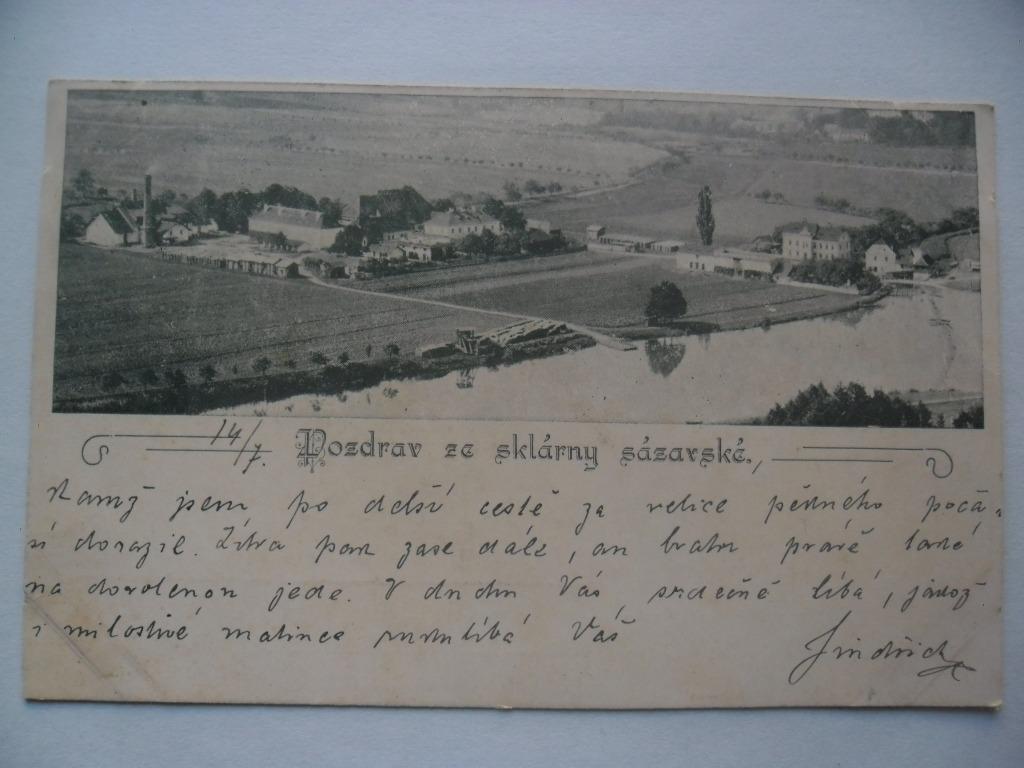 14/7.
Pozdrav ze sklárny sázavské.,
Kamž jsem po delší cestě za velice pěkného počа-
sí dorazil. Zítra pak zase dále, an bratr právě také
na dovolenou jede. V duchu Vás srdečně líbá, jakož
i milostivé matince ruku líbá Váš
Jindřich